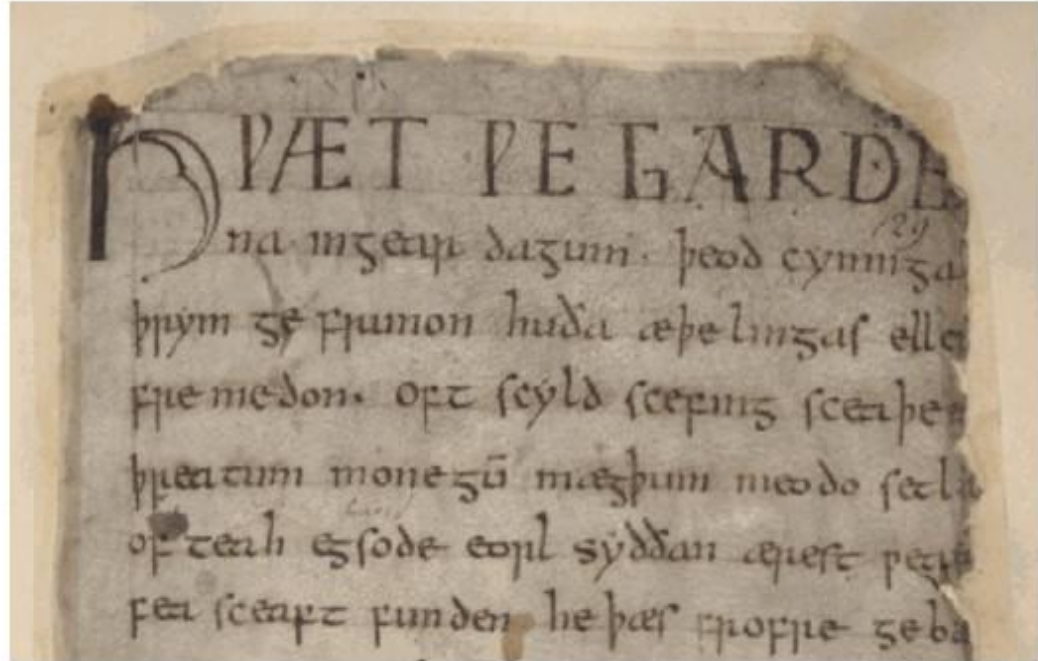 HǷÆT ǷE GARDE
na ingear dagum. þeod cyninga
þrym ge frunon huða æþelingas elle
fremedon. oft scyld scefing sceaþe
þreatum monegū mægþum meodo setla
of teah egsode eorl syððan ærest
fea sceaft funden he þæs frofre geba